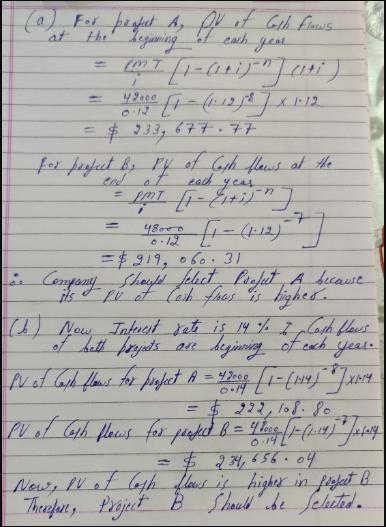 (a) For project A, PV of Cash flows
at the beginning of each year
= PMT/i [1-(1+i)^-n] (1+i)
= 42000/0.12 [1-(1.12)^-8] × 1.12
= $ 233,677.77
For project B, PV of Cash flows at the
end of each year
= PMT/i [1-(1+i)^-n]
= 48000/0.12 [1-(1.12)^-7]
= $ 219,060.31
∴ Company should select Project A because
its PV of Cash flows is higher.
(b) Now Interest rate is 14% & Cash flows
of both projects are beginning of each year.
PV of Cash flows for project A = 42000/0.14 [1-(1.14)^-8] × 1.14
= $ 222,108.80
PV of Cash flows for project B = 48000/0.14 [1-(1.14)^-7] × 1.14
= $ 234,656.04
Now, PV of Cash flows is higher in project B
Therefore, Project B should be selected.